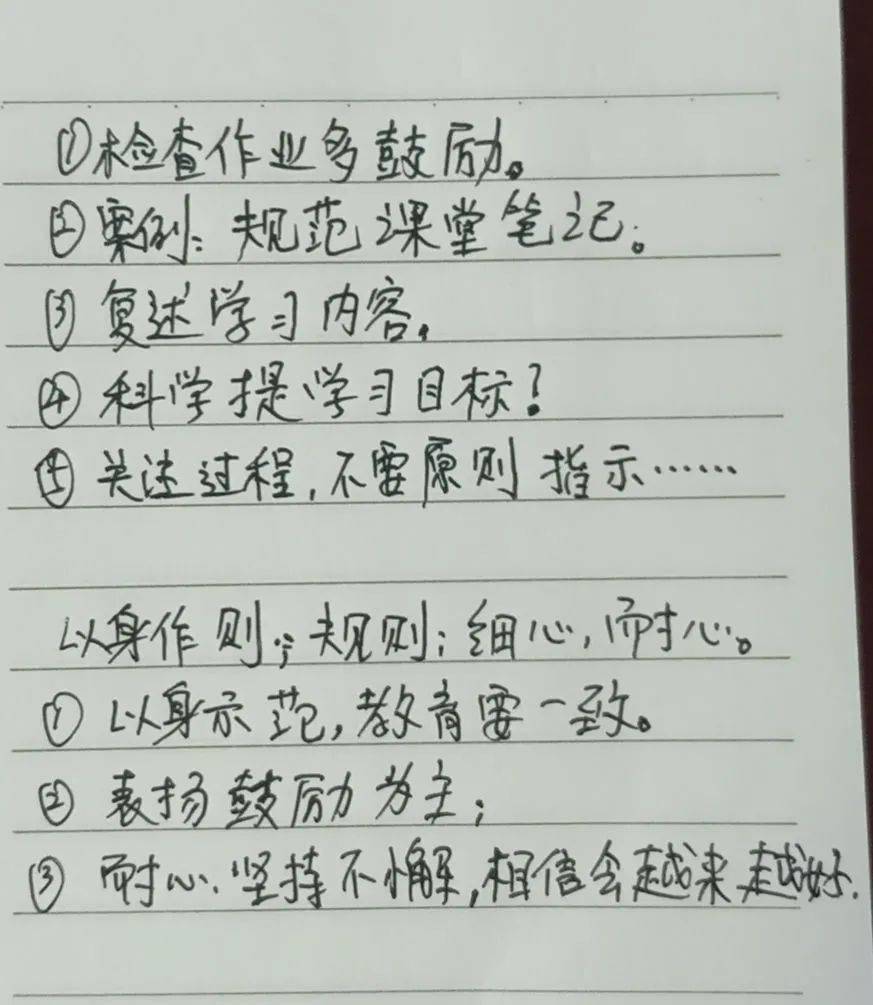 ①检查作业多鼓励。
②案例:规范课堂笔记。
③复述学习内容。
④科学提学习目标?
⑤关注过程,不要原则指示……
以身作则;规则;细心,耐心。
①以身示范,教育要一致。
②表扬鼓励为主;
③耐心.坚持不懈,相信会越来越好.